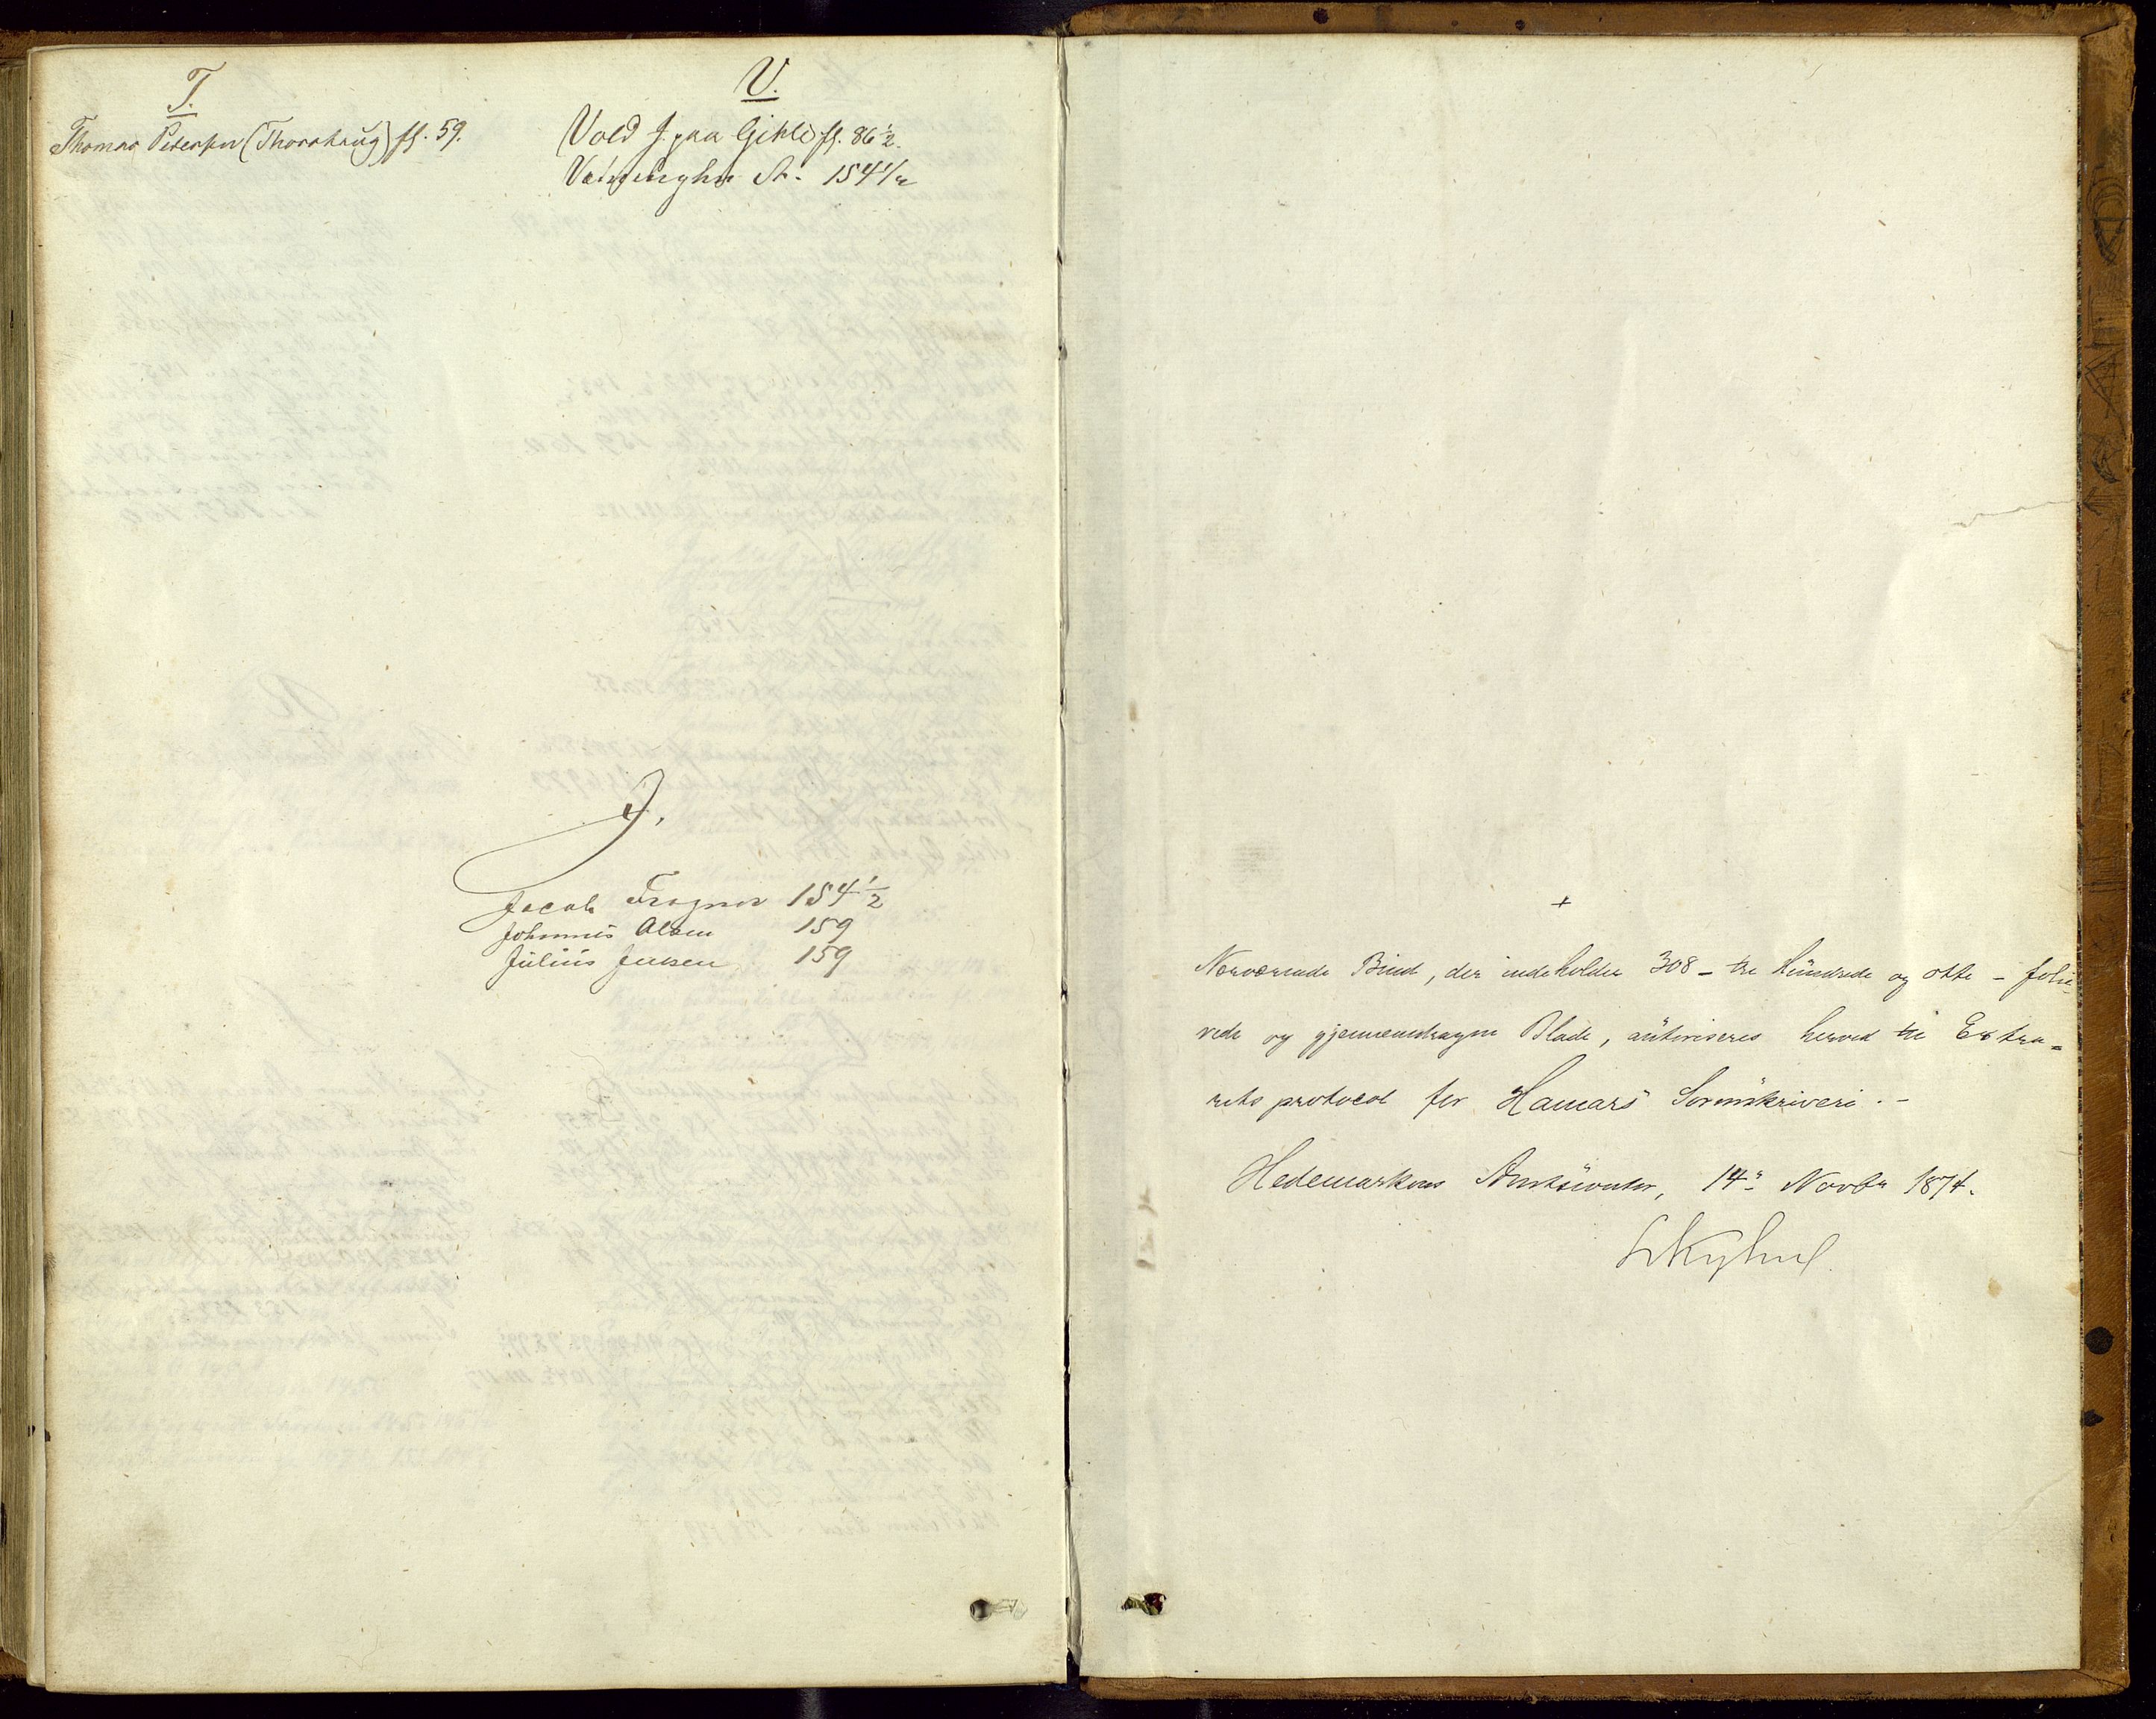 T.
Thomas Petersen (Thorshaug) fl. 59.
V.
Vold J. paa Gihle fl. 86½.
St. 154½
J.
Jacob Frogner 154½
Johannes Olsen 159
Julius Jensen 159
+
Nærværende Bind, der indeholder 308 - tre Hundrede og otte - folie-
rede og gjennemdragne Blade, autoriseres herved til Extra-
rets protocol for Hamars Sorenskriveri. -
Hedemarkens Amtscontor, 14de Novbr 1874.